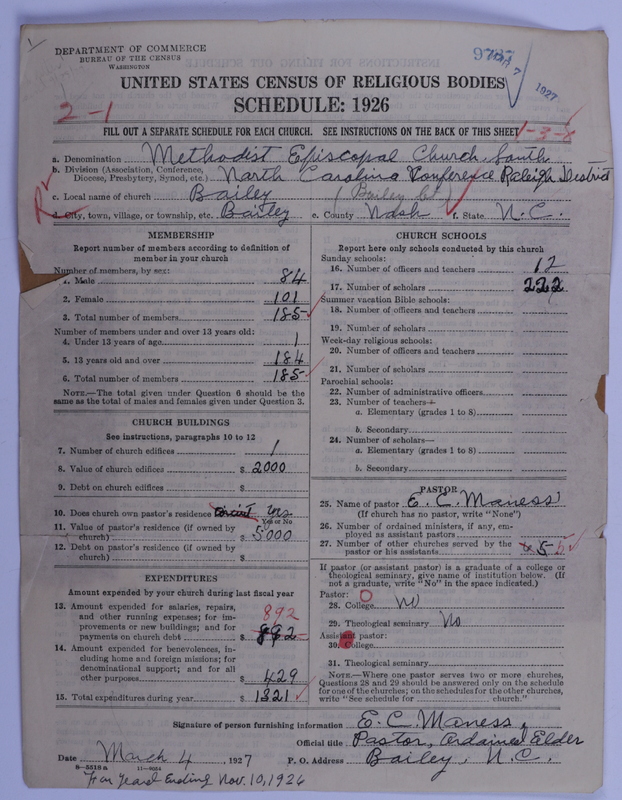 DEPARTMENT OF COMMERCE
BUREAU OF THE CENSUS
WASHINGTON
1927
UNITED STATES CENSUS OF RELIGIOUS BODIES
SCHEDULE: 1926
2-1
1-3-8
FILL OUT A SEPARATE SCHEDULE FOR EACH CHURCH. SEE INSTRUCTIONS ON THE BACK OF THIS SHEET
a. Denomination Methodist Episcopal Church, South
b. Division (Association, Conference, Diocese, Presbytery, Synod, etc.) North Carolina Conference Raleigh District
c. Local name of church Bailey (Bailey Ct)
d. City, town, village, or township, etc. Bailey e. County Nash f. State N.C.
MEMBERSHIP
Report number of members according to definition of
member in your church
Number of members, by sex:
1. Male 84
2. Female 101
3. Total number of members 185
Number of members under and over 13 years old:
4. Under 13 years of age 1
5. 13 years old and over 184
6. Total number of members 185
NOTE.—The total given under Question 6 should be
same as the total of males and females given under Question 3.
CHURCH BUILDINGS
See instructions, paragraphs 10 to 12
7. Number of church edifices 1
8. Value of church edifices $ 2000
9. Debt on church edifices $
10. Does church own pastor's residence Circuit Yes
Yes or No
11. Value of pastor's residence (if owned by
church) $ 5000
12. Debt on pastor's residence (if owned by
church) $
EXPENDITURES
Amount expended by your church during last fiscal year
13. Amount expended for salaries, repairs,
and other running expenses; for im-
provements or new buildings; and for
payments on church debt $ 892
892
14. Amount expended for benevolences, in-
cluding home and foreign missions; for
denominational support; and for all
other purposes $ 429
15. Total expenditures during year $ 1321
CHURCH SCHOOLS
Report here only schools conducted by this church
Sunday schools:
16. Number of officers and teachers 12
17. Number of scholars 222
Summer vacation Bible schools:
18. Number of officers and teachers
19. Number of scholars
Week-day religious schools:
20. Number of officers and teachers
21. Number of scholars
Parochial schools:
22. Number of administrative officers
23. Number of teachers—
a. Elementary (grades 1 to 8)
b. Secondary
24. Number of scholars—
a. Elementary (grades 1 to 8)
b. Secondary
PASTOR
25. Name of pastor E. C. Maness
(If church has no pastor, write "None")
26. Number of ordained ministers, if any, em-
ployed as assistant pastors
27. Number of other churches served by the
pastor or his assistants 5 5
If pastor (or assistant pastor) is a graduate of a college or
theological seminary, give name of institution below. (If
not a graduate, write "No" in the space indicated.)
Pastor:
28. College No
29. Theological seminary No
Assistant pastor:
30. College
31. Theological seminary
NOTE.—Where one pastor serves two or more churches,
Questions 28 and 29 should be answered only on the schedule
for one of the churches; on the schedules for the other churches,
write "See schedule for church."
Signature of person furnishing information E. C. Maness,
Official title Pastor, Ordained Elder
Date March 4, 1927 P. O. Address Bailey, N.C.
8-5518 a
For Year Ending Nov. 10, 1926